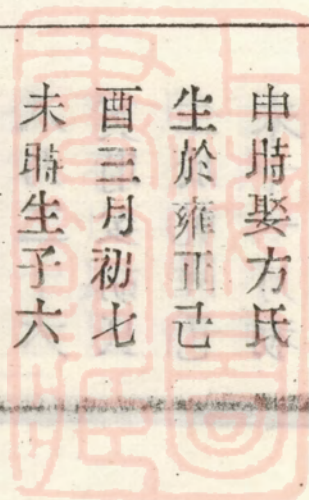 申時娶方氏
生於雍正己
酉三月初七
未時生子六